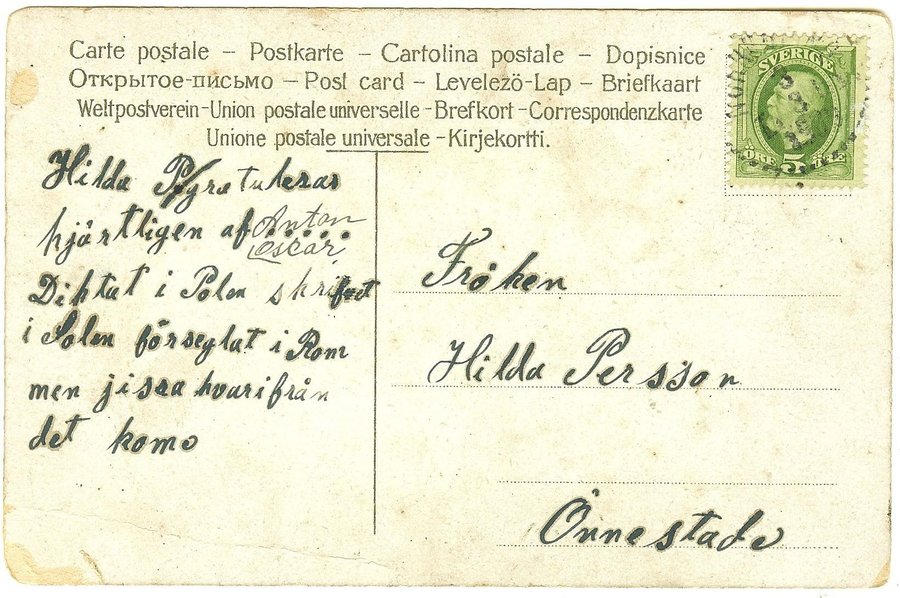 Carte postale – Postkarte – Cartolina postale – Dopisnice
Открытое-письмо – Post card – Levelezö-Lap – Briefkaart
Weltpostverein-Union postale universelle-Brefkort-Correspondenzkarte
Unione postale universale-Kirjekortti.
SVERIGE
ÖRE 5
Hilda P gratuleras
hjärtligen af Anton
Oscar
Diktat i Polen skrifvet
i Solen förseglat i Rom
men jissa hvarifrån
det komo
Fröken
Hilda Persson
Önnestade